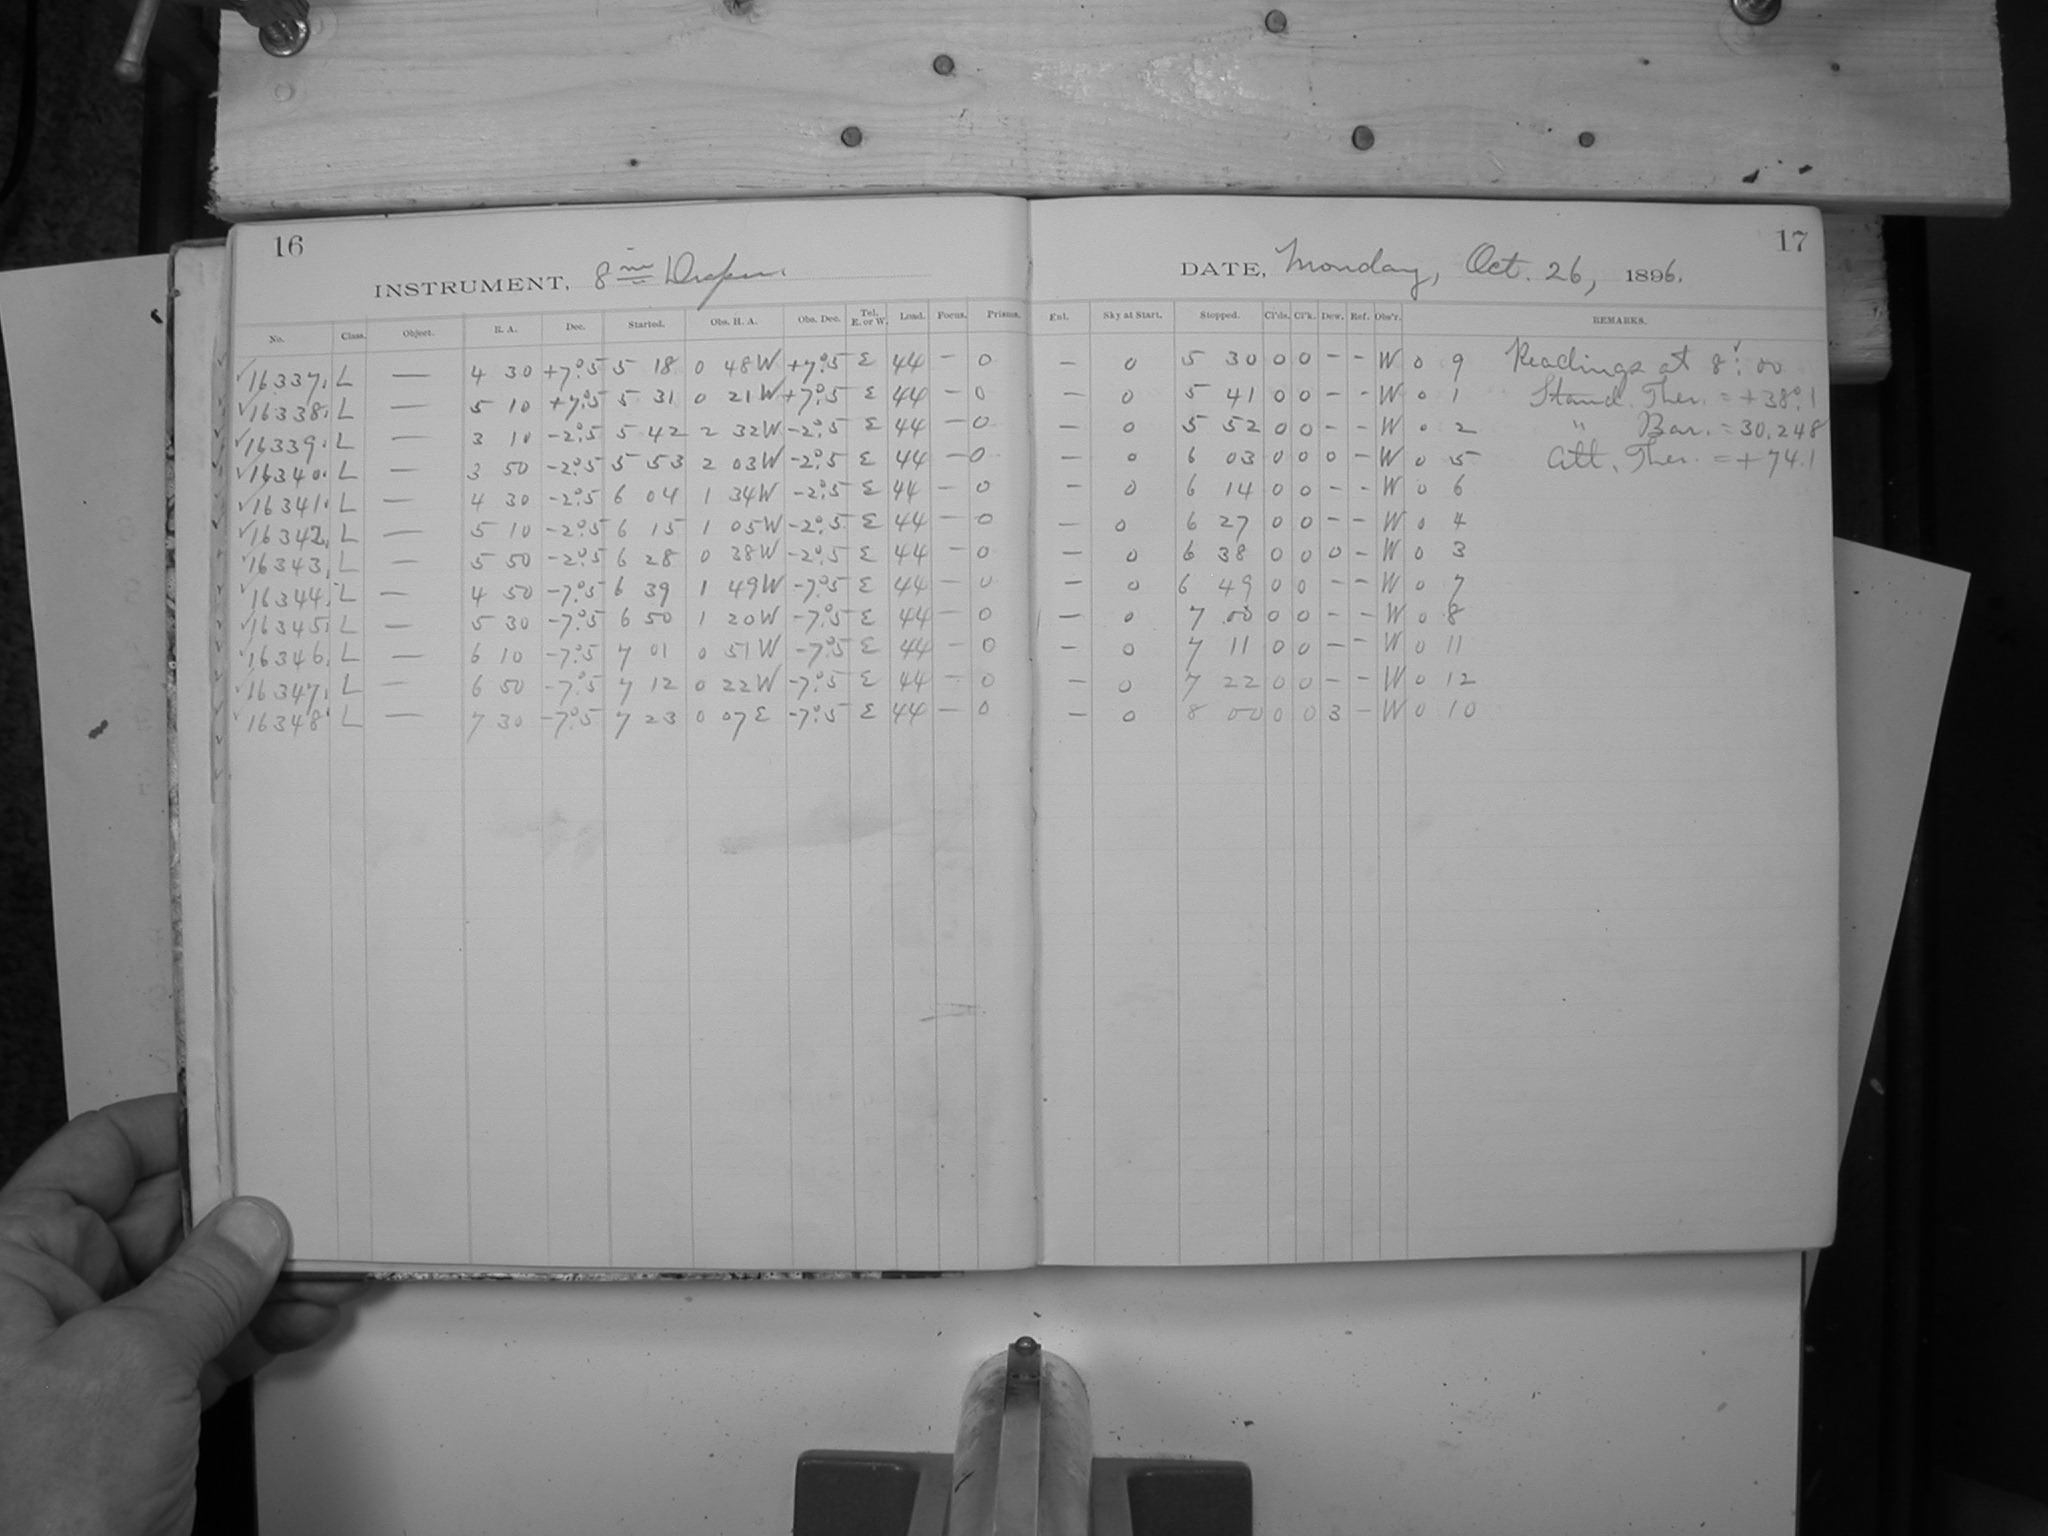 16 17
INSTRUMENT, 8 in Draper. DATE, Monday, Oct. 26, 1896.
No. Class. Object. R. A. Dec. Started. Obs. H. A. Obs. Dec. Tel. E. or W. Load. Focus. Prisms. Enl. Sky at Start. Stopped. Cl'ds. Cl'k. Dew. Ref. Obs'r. REMARKS.
✓16337. L — 4 30 +7°.5 5 18 0 48W +7°.5 E 44 – 0 – 0 5 30 0 0 – – W 0 9 Readings at 8: 00
✓16338. L — 5 10 +7°.5 5 31 0 21W +7°.5 E 44 – 0 – 0 5 41 0 0 – – W 0 1 Stand. Ther. = +38°.1
✓16339. L — 3 10 -2°.5 5 42 2 32W -2°.5 E 44 – 0 – 0 5 52 0 0 – – W 0 2 " Bar. = 30.248
✓16340. L — 3 50 -2°.5 5 53 2 03W -2°.5 E 44 – 0 – 0 6 03 0 0 0 – W 0 5 Att. Ther. = +74.1
✓16341. L — 4 30 -2°.5 6 04 1 34W -2°.5 E 44 – 0 – 0 6 14 0 0 – – W 0 6
✓16342. L — 5 10 -2°.5 6 15 1 05W -2°.5 E 44 – 0 – 0 6 27 0 0 – – W 0 4
✓16343. L — 5 50 -2°.5 6 28 0 38W -2°.5 E 44 – 0 – 0 6 38 0 0 0 – W 0 3
✓16344. L — 4 50 -7°.5 6 39 1 49W -7°.5 E 44 – 0 – 0 6 49 0 0 – – W 0 7
✓16345. L — 5 30 -7°.5 6 50 1 20W -7°.5 E 44 – 0 – 0 7 00 0 0 – – W 0 8
✓16346. L — 6 10 -7°.5 7 01 0 51W -7°.5 E 44 – 0 – 0 7 11 0 0 – – W 0 11
✓16347. L — 6 50 -7°.5 7 12 0 22W -7°.5 E 44 – 0 – 0 7 22 0 0 – – W 0 12
✓16348. L — 7 30 -7°.5 7 23 0 07E -7°.5 E 44 – 0 – 0 8 00 0 0 3 – W 0 10